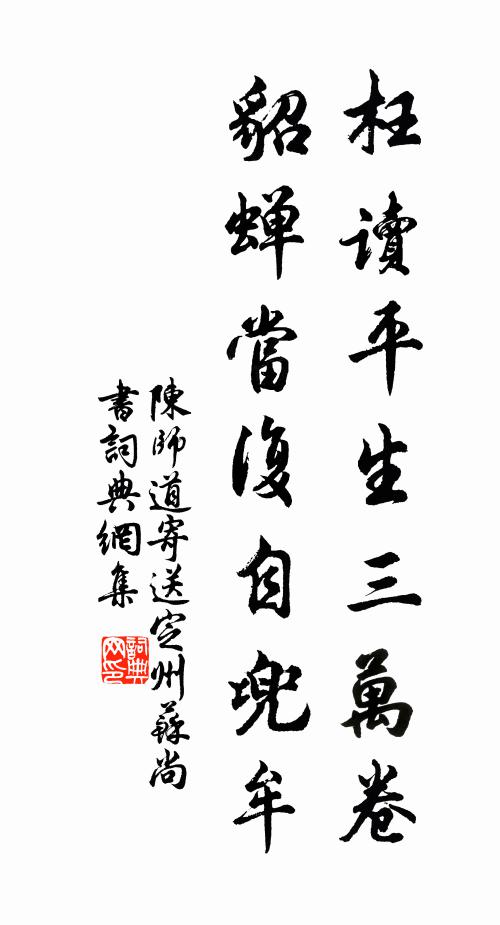 枉讀平生三萬卷
貂蟬當復自兜牟
陳師道寄送定州蘇尚
書詞典網集
詞典網印